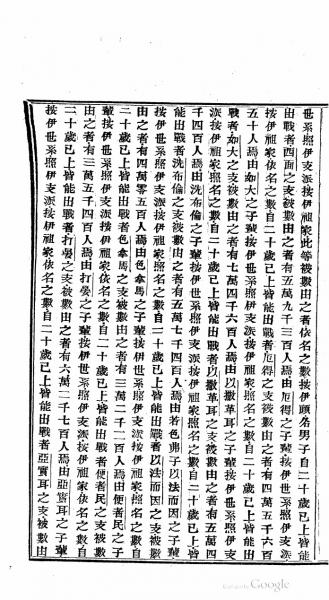 世系照伊支派按伊祖家此等被數由之者依名之數按伊頭各男子自二十歲已上皆能
出戰者四面之支被數由之者有五萬九千三百人焉由厄得之子輩按伊世系照伊支派
按伊祖家依名之數自二十歲已上皆能出戰者厄得之支被數由之者有四萬五千六百
五十人焉由如大之子輩按伊世系照伊支派按伊祖家照名之數自二十歲已上皆能出
戰者如大之支被數由之者有七萬四千六百人焉由以撒革耳之子輩按伊世系照伊支
派按伊祖家照名之數自二十歲已上皆能出戰者以撒革耳之支被數由之者有五萬四
千四百人焉由洗布倫之子輩按伊世系照伊支派按伊祖家照名之數自二十歲已上皆
能出戰者洗布倫之支被數由之者有五萬七千四百人焉由若色弗子以法而因之子輩
按伊世系照伊支派按伊祖家照名之數自二十歲已上皆能出戰者以法而因之支被數
由之者有四萬零五百人焉由色拿馬之子輩按伊世系照伊支派按伊祖家照名之數自
二十歲已上皆能出戰者色拿馬之支被數由之者有三萬二千二百人焉由便者民之子
輩按伊世系照伊支派按伊祖家依名之數自二十歲已上皆能出戰者便者民之支被數
由之者有三萬五千四百人焉由打晏之子輩按伊世系照伊支派按伊祖家依名之數自
二十歲已上皆能出戰者打晏之支被數由之者有六萬二千七百人焉由亞實耳之子輩
按伊世系照伊支派按伊祖家依名之數自二十歲已上皆能出戰者亞實耳之支被數由
Google